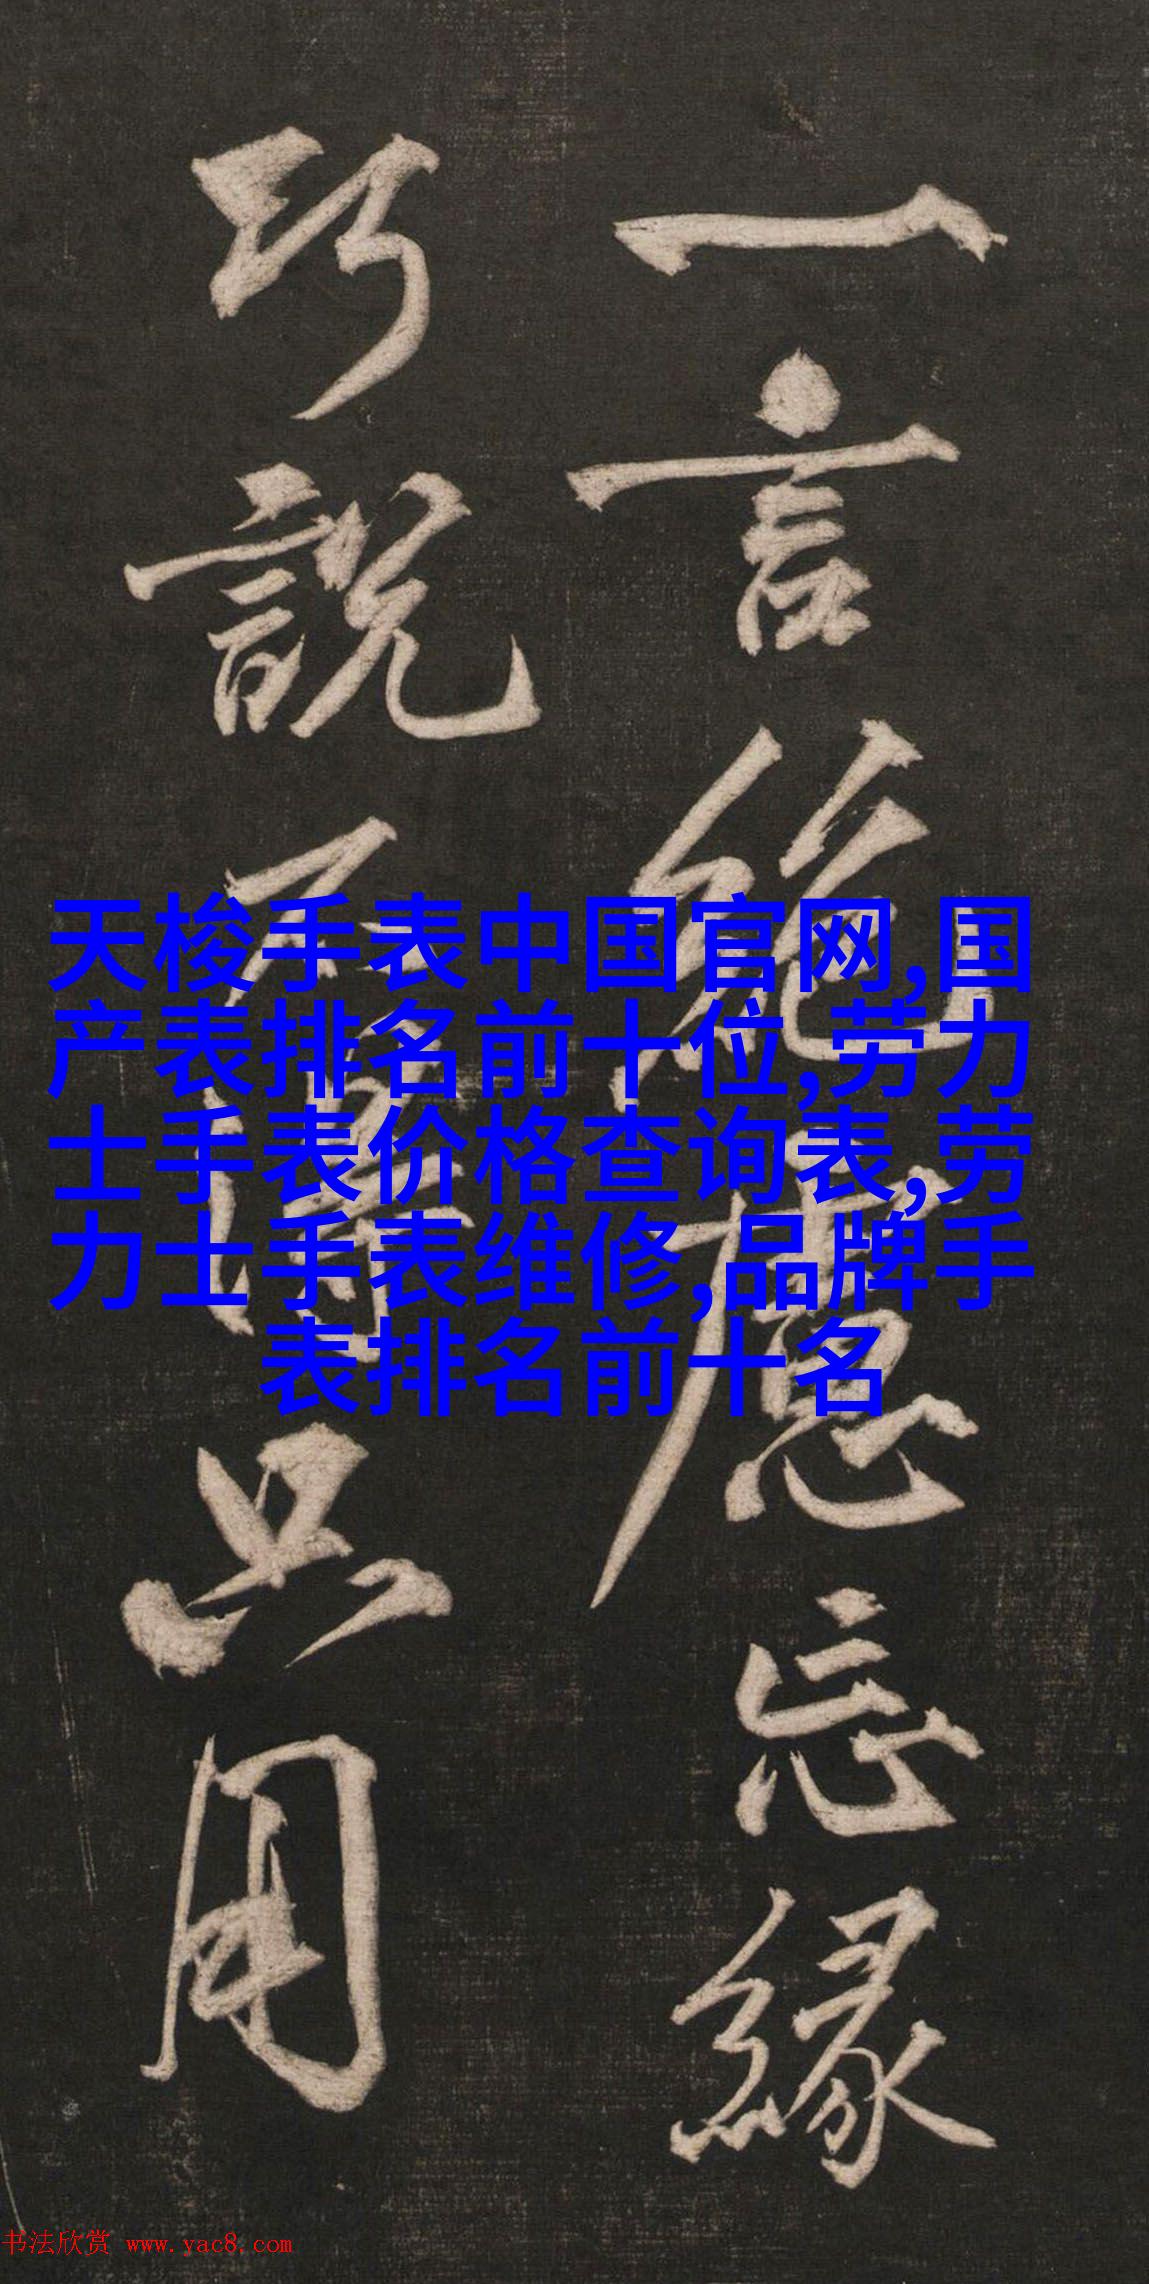 一言絕慮忘緣
巧說不得只用
天梭手表中国官网,国
产表排名前十位,劳力
士手表价格查询表,劳
力士手表维修,品牌手
表排名前十名
书法欣赏 www.yac8.com